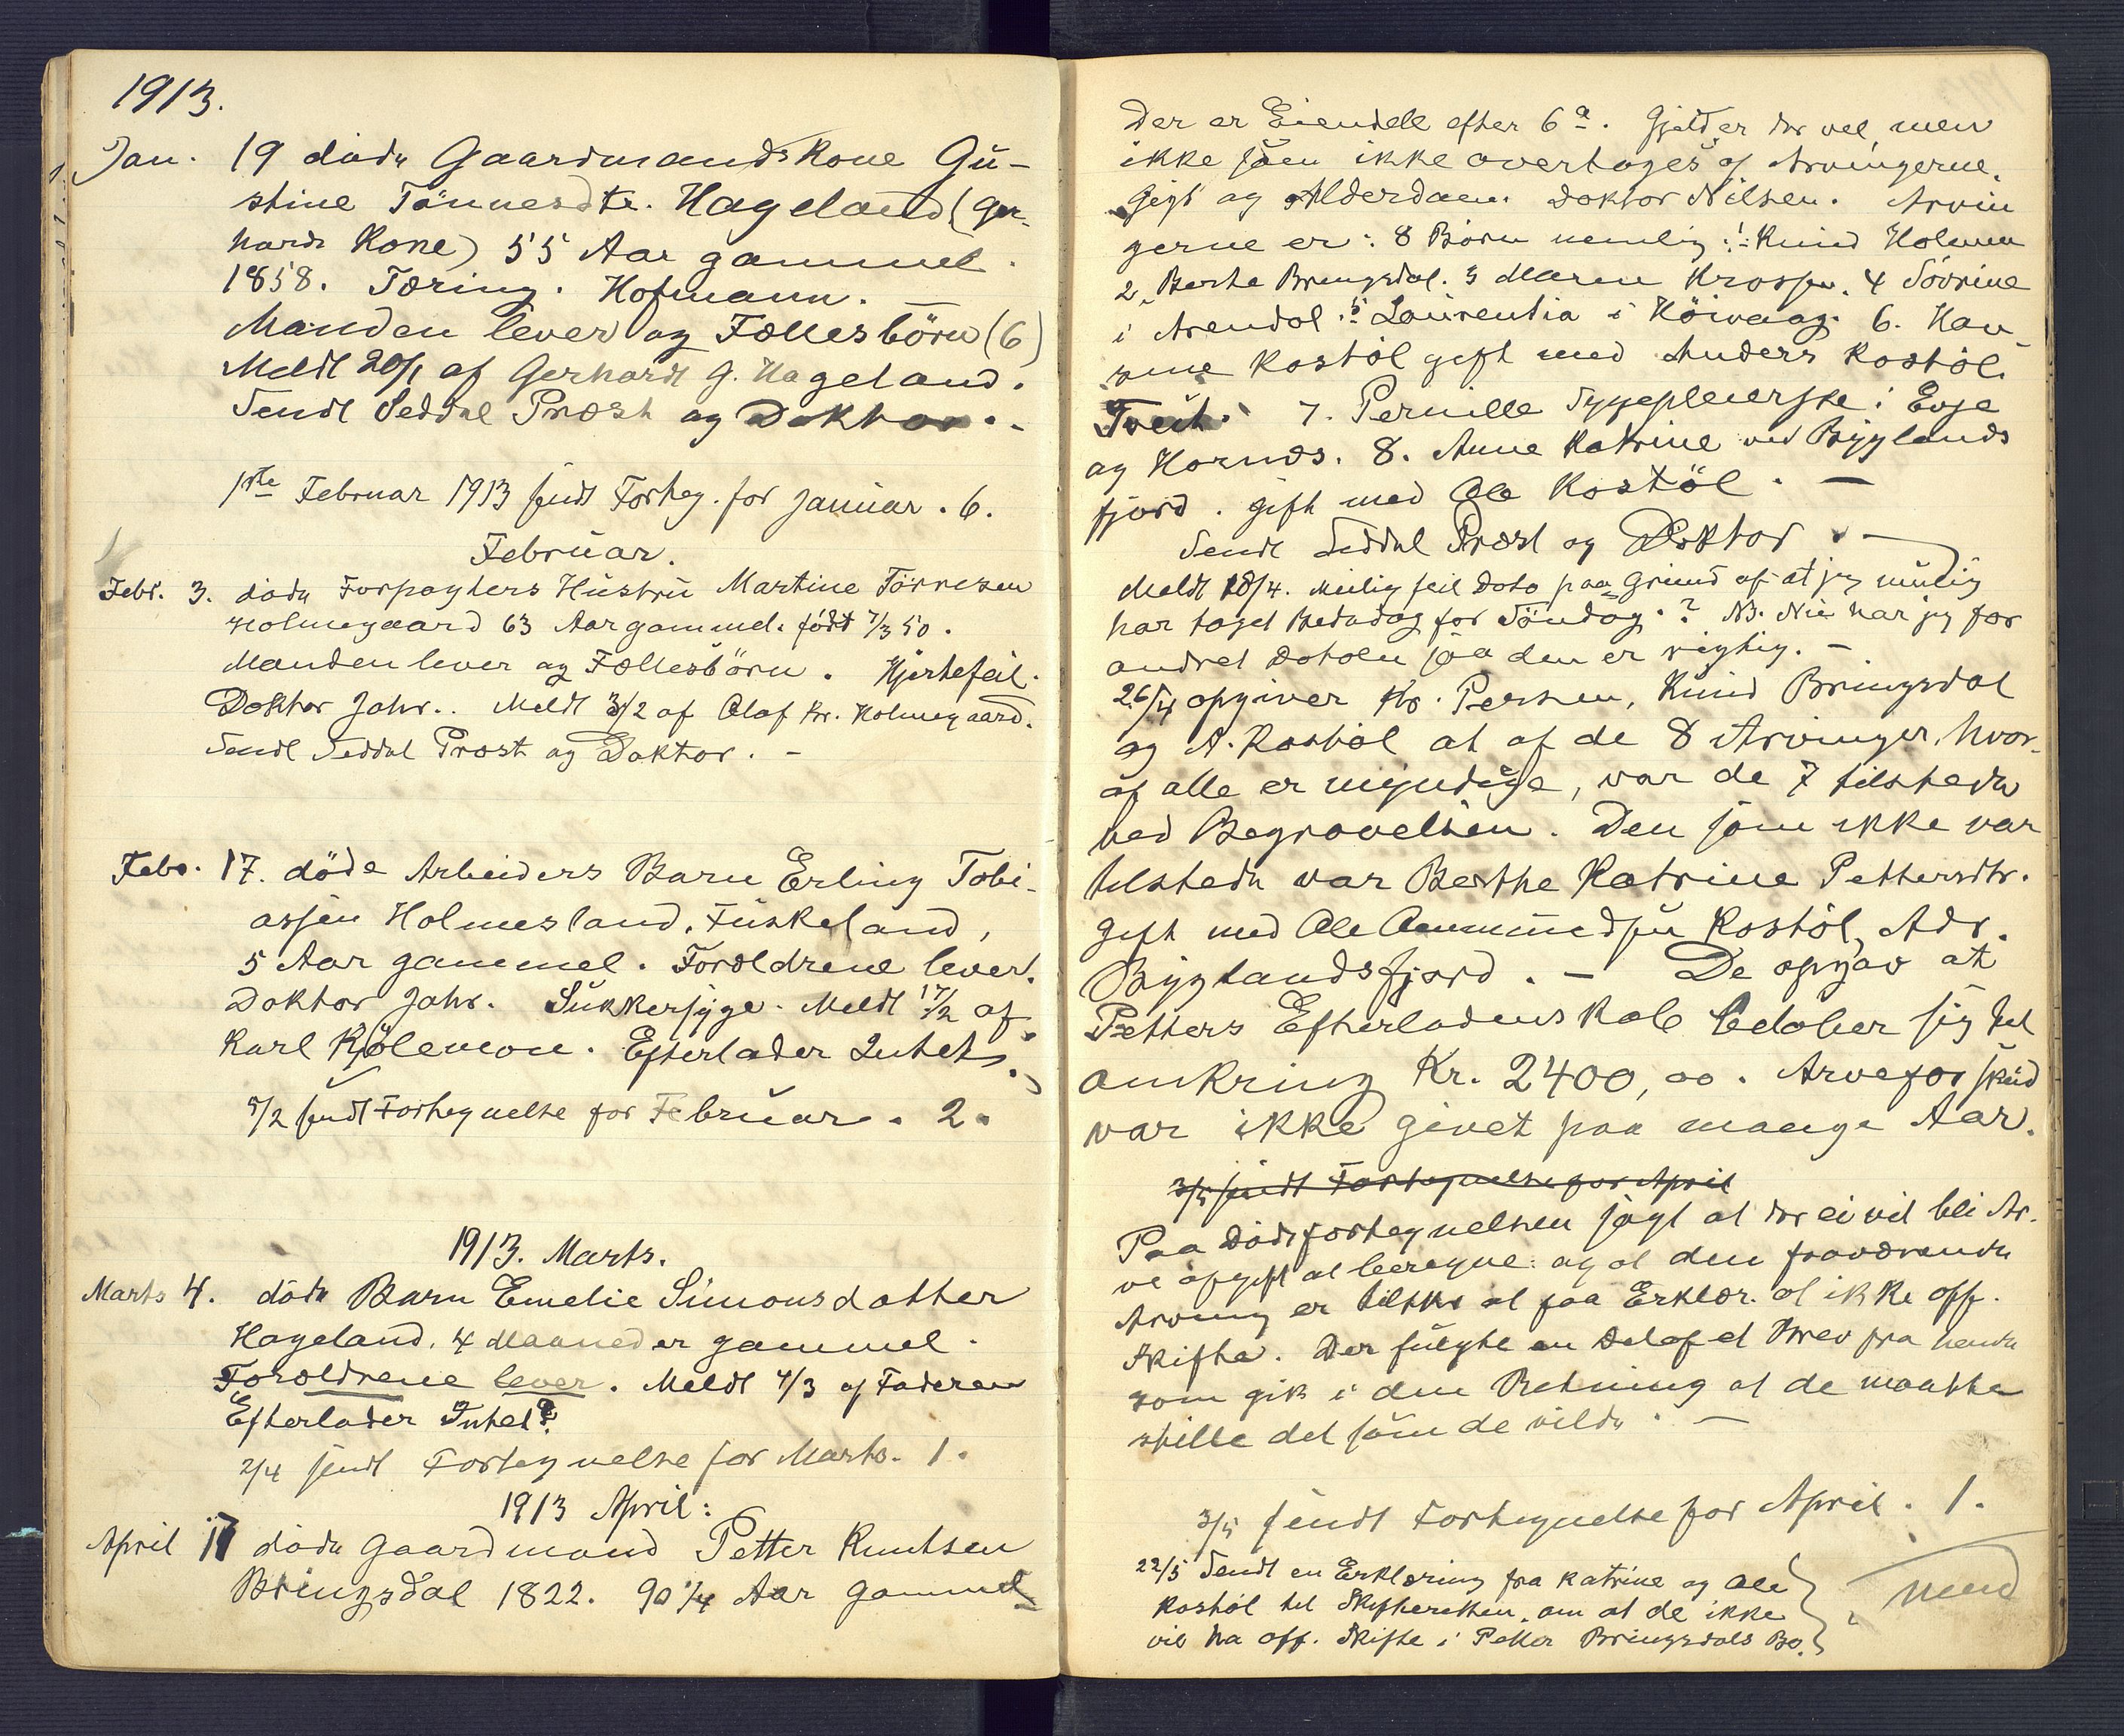 1913.
Jan. 19 døde Gaardmandskone Gu-
stine Tønnesdtr. Hageland (Ger-
hards Kone) 55 Aar gammel.
1858. Tæring. Hofmann. —
Manden lever og Fællesbörn (6)
Meldt 20/1 af Gerhardt G. Hageland.
Sendt Seddel Præst og Doktor. -
1ste Februar 1913 sendt Forteg. for Januar. 6.
Februar.
Febr. 3. døde Forpagters Hustru Martine Törresen
Holmegaard 63 Aar gammel. födt 7/3 50.
Manden lever og Fællesbörn. Hjertefeil.
Doktor Jahr.. Meldt 3/2 af Olaf Kr. Holmegaard.
Sendt Seddel Præst og Doktor. -
Febr. 17. döde Arbeiders Barn Erling Tobi-
assen Holmesland, Fuskeland,
5 Aar gammel. Forældrene lever.
Doktor Jahr. Sukkersyge. Meldt 17/2 af
Karl Kjölemon. Efterlader Intet.
sendt Fortegnelse for Februar. 2.
1913. Marts.
Marts 4. døde Barn Emelie Simonsdatter
Hageland. 4 Maaneder gammel.
Forældrene lever. Meldt 4/3 af Faderen
Efterlader Intet?
2/4 sendt Fortegnelse for Marts. 1.
1913 April:
April 17 døde Gaardmand Petter Knutsen
Bringsdal 1822. 90 1/4 Aar gammel
Der er Eiendele efter 6a. Gjeld er der vel men
ikke som ikke overtages af Arvingerne.
Gigt og Alderdom. Doktor Nilsen. Arvin
gerne er: 8 Börn nemlig: 1: Knud Holmen
2 Berte Bringsdal. 3 Maren Krossen. 4 Sövrine
i Arendal. 5 Laurentia i Höivaag. 6. Han
sine Kostöl gift med Anders Kostöl.
Tveit. 7. Pernille Sygepleierske i Evje
og Hornæs. 8. Anne Katrine ved Byglands
fjord. gift med Ole Kostöl. —
Sendt Seddel Præst og Doktor. —
Meldt 18/4. Mulig feil Dato paa Grund af at jeg mulig
har taget Bededag for Söndag.? NB. Nu har jeg for
andret Datoen saa den er rigtig. —
26/4 opgiver Kr. Persen, Knud Bringsdal
og A. Kostöl at af de 8 Arvinger, hvor-
af alle er myndige, var de 7 tilstede
ved Begravelsen. Den som ikke var
tilstede var Berthe Katrine Pettersdtr.
gift med Ole Aanundsen Kostöl, Adr.
Byglandsfjord. — De opgav at
Petters Efterladenskab beløber sig til
omkring Kr. 2400,00. Arveforskud
var ikke givet paa mange Aar.
3/5 sendt Fortegnelse for April
Paa Dödsfortegnelsen sagt at der ei vil bli Ar-
veafgift at beregne: og at den fraværende
Arving er tilskr at faa Erklær. at ikke off.
Skifte. Der fulgte en Del af et Brev fra hende
som gik i den Retning at de maatte
stille det som de vilde. —
3/5 sendt Fortegnelse for April. 1.
22/5 Sendt en Erklæring fra Katrine og Ole
Kostöl til Skifteretten, om at de ikke
vil ha off. Skifte i Petter Bringsdals Bo.